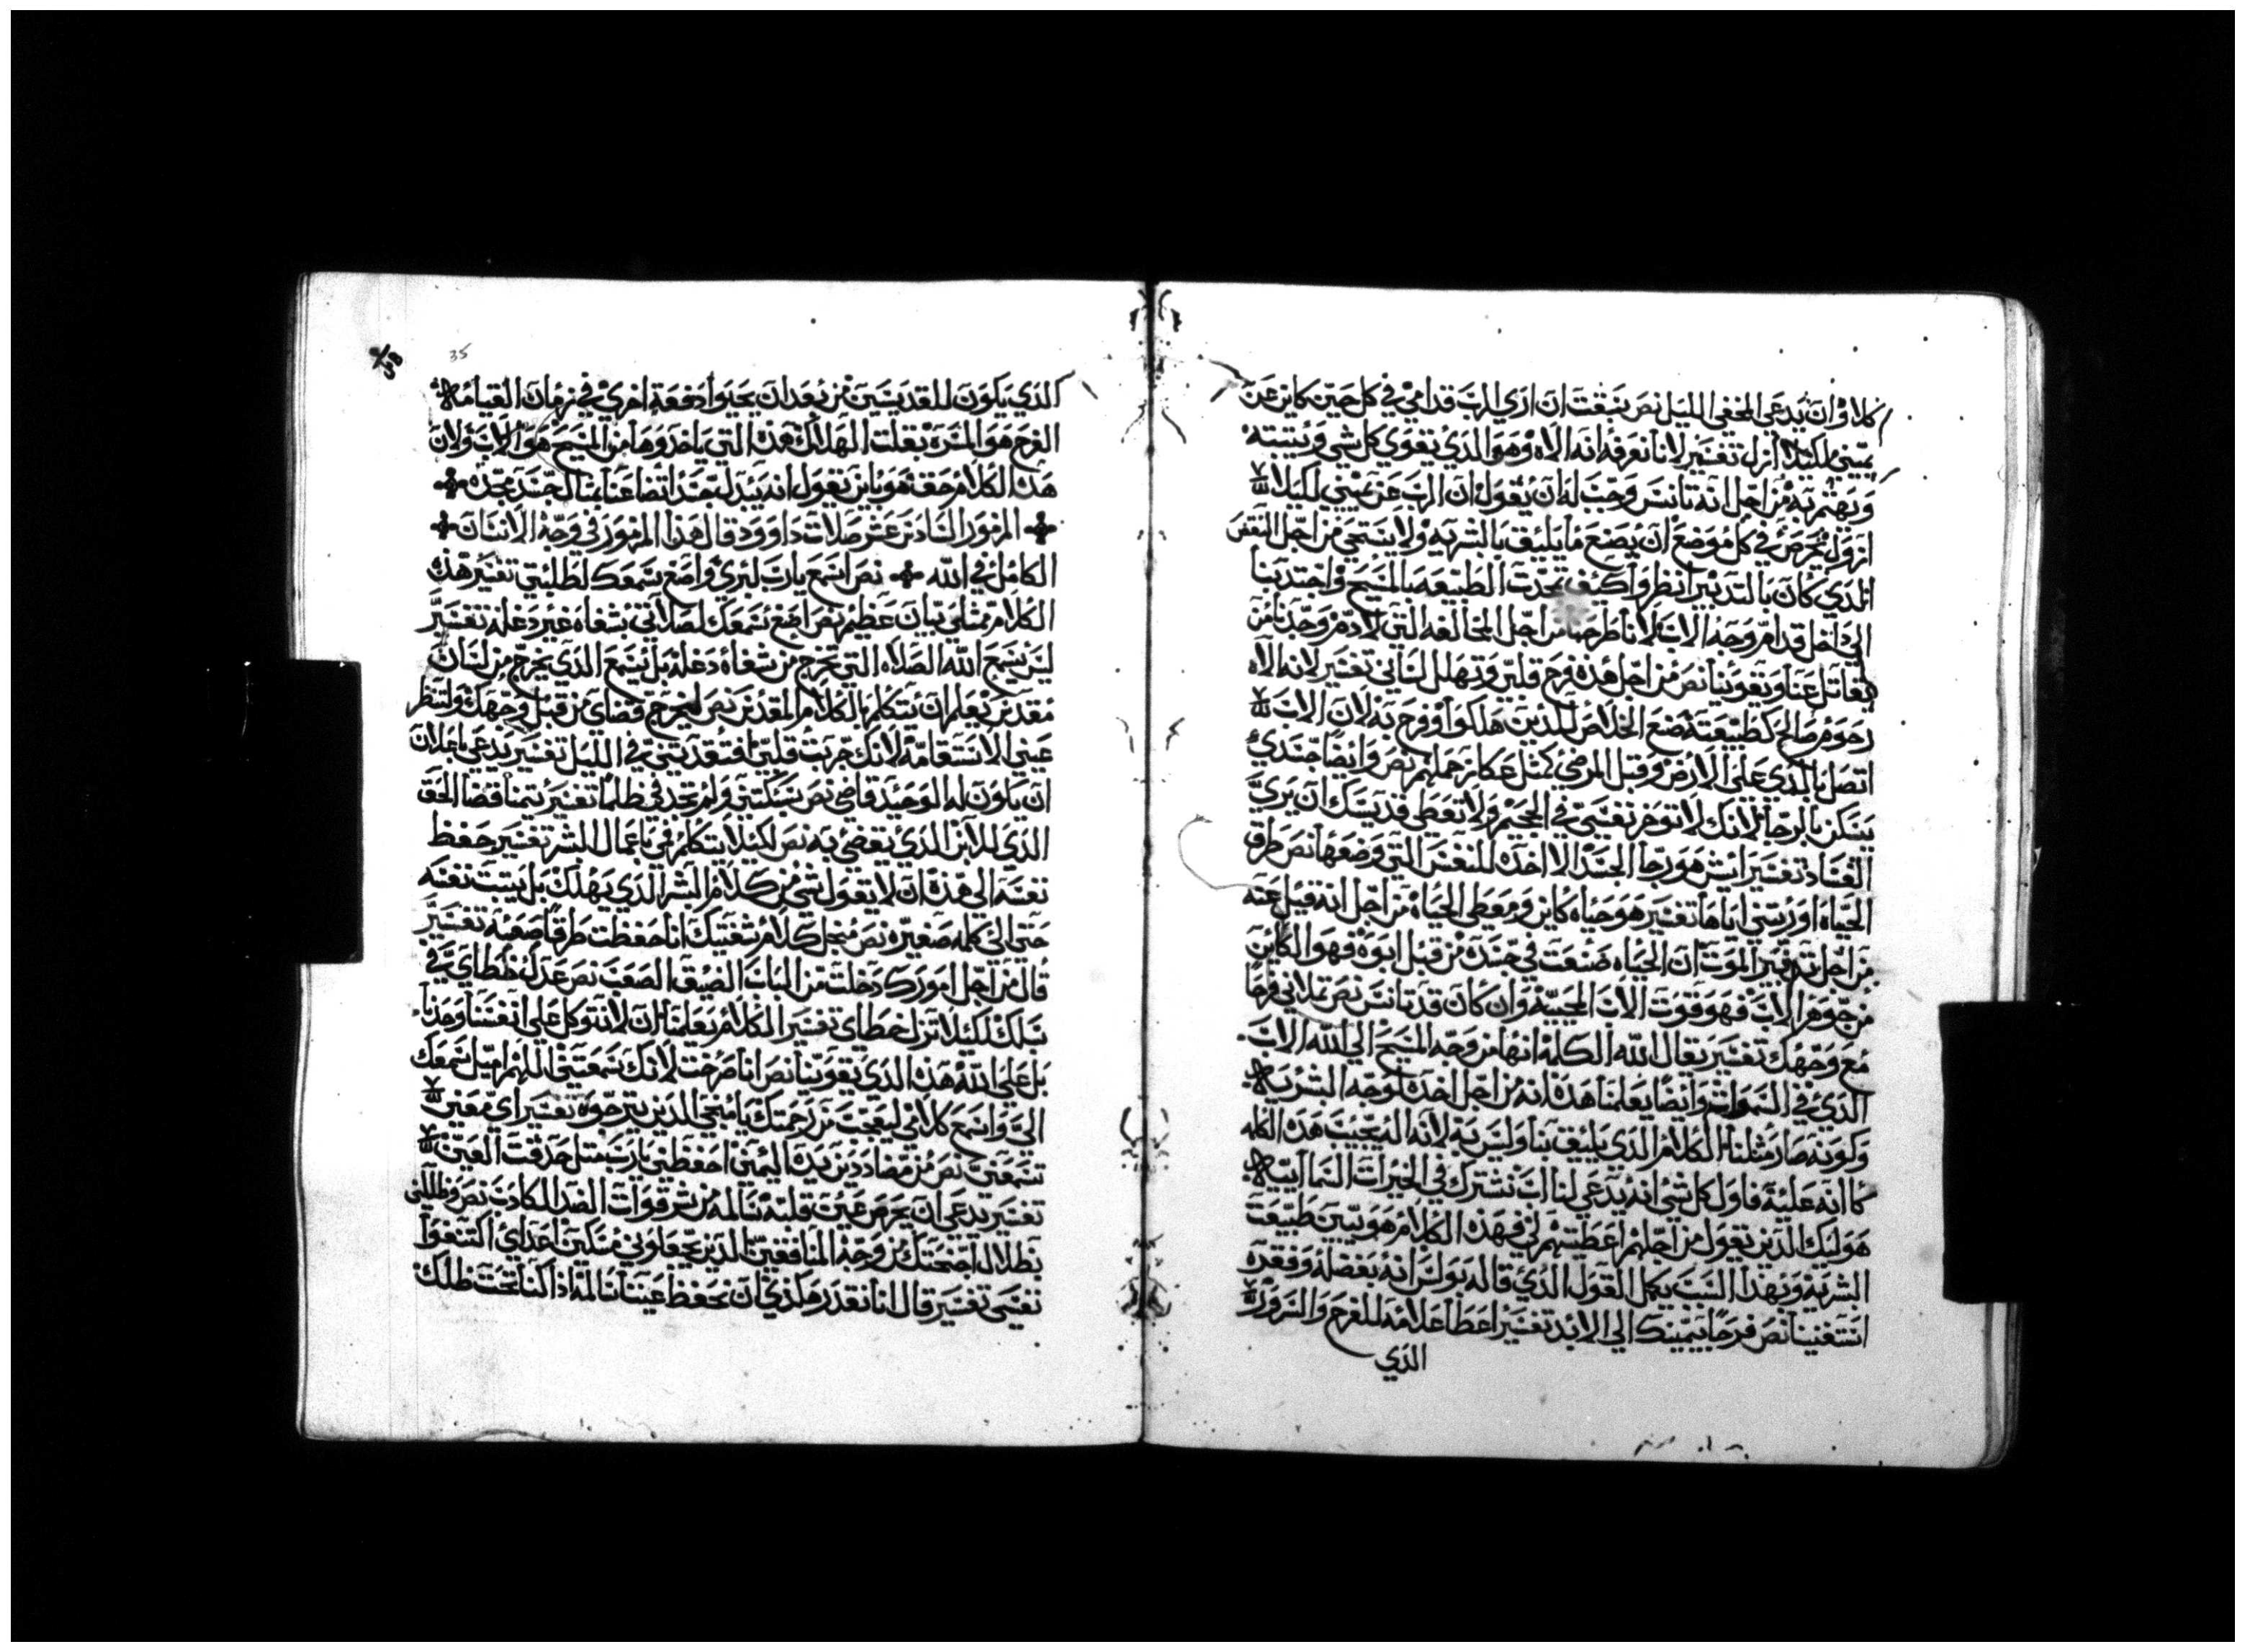 كلاوان يدعي المخفي الليل نص سبقت ان اري الرب قدامي في كل حين كاين عن
يميني لكيلا ازل تفسير لانا نعرفه انه الاه وهو الذي تقوي كل شي ويثبته
ويهتم به من اجل انه تانس وجب له ان يقول ان الرب عن يميني لكيلا
ازول يحرص في كل موضع ان يصنع ما يليق بالبشريه ولا يستحي من اجل النقص
الذي كان بالتدبير انظروا كيف تجدت الطبيعه بالمسيح واجتدبنا
الي داخل قدام وجه الاب لانا طرحنا من اجل المخالفه التي لادم وجدنا من
يقاتل عنا ويقوينا نص من اجل هذه فرح قلبي وتهلل لساني تفسير لانه الاه
رحوم صالح كطبيعته صنع الخلاص للذين هلكوا وفرح به لان الاب
اتصل بالذي علي الارض وقبل المرضي كمثل عكاز حملهم نص وايضا جسدي
يسكن بالرجا لانك لا توخر نفسي في الجحيم ولا تعطي قديسك ان يري
الفساد تفسير ايش هو رجا الجسد الا اخده للنفس التي وضعها نص طرق
الحياه اوريتني اياها تفسير هو حياه كاين ومعطي الحياه من اجل انه قيل عنه
من اجل تدبير الموت ان الحياه صنعت في جسده من قبل ابوه فهو الكاين
من جوهر الاب فهو قوت الاب المحييه وان كان قد تانس نص تملاني فرحا
مع وجهك تفسير يقال الله الكلمه انها من وجه المسيح الي الله الاب
الذي في السموات وايضا يعلمنا هذه لانه من اجل اخده لوجه البشريه
وكونه صار مثلنا الكلام الذي يليق بنا وليس به لانه اله يجيب هذه الكلمه
كما انه علينه فاول كل شي انه يدعي لنا ان نشترك في الخيرات السماييه
هوليك الذين يقول من اجلهم اعطيتهم لي فهذه الكلام هو يبين طبيعت
البشريه وبهذا السبب يكمل القول الذي قاله بولس انه بفضله وفقره
استغنينا نص فرحا بيمينك الي الابد تفسير اعطا علامه للفرح والسرور
الذي
35
الذي يكون للقديسين من بعد ان يحيوا دفعه اخري في زمان القيامه
الفرح هو المسره بقلت الهلاك هذه التي ياخدوها من المسيح هو الاب ولان
هذا الكلام حق هو باين يقول انه يبدل جسد اتضاعنا بمثال جسد مجده
المزمور السادس عشر صلات داوود قال هذا المزمور في وجه الانسان
الكامل في الله نص اسمع يارب لبري واضع سمعك لطلبتي تفسير هذه
الكلام ممتلي بيان عظيم نص اضع سمعك لصلاتي بشفاه غير دغله تفسير
ليس يسمع الله الصلاه التي تخرج من شفاه دغله بل يسمع الذي يخرج من لسان
مقدس يعلم ان يتكلم بالكلام المقدس نص ليخرج قضاي من قبل وجهك ولتنظر
عيني الاستقامه لانك جربت قلبي افتقدتني في الليل تفسير يدعي باعلان
ان يكون له الوحيد قاضي نص سبكتني ولم تجد في ظلما تفسير يتمنا قضا الحق
الذي للابن الذي يقضي به نص لكيلا يتكلم فمي باعمال البشر تفسير حفظ
نفسه الي هذه ان لا تقول شي من كلام البشر الذي يهلك بل يثبت نفسه
حتي الي كلمه صغيره نص من اجل كلام شفتيك انا حفظت طرقا صعبه تفسير
قال من اجل اموركم دخلت من الباب الضيق الصعب نص عدل خطاي في
سبلك لكيلا تزل خطاي تفسير الكلام يعلمنا ان لا نتوكل علي انفسنا وحدنا
بل علي الله هذه الذي يقوينا نص انا صرخت لانك سمعتني اللهم اميل سمعك
الي واسمع كلامي ليعجب من رحمتك يا منجي الذين يترجوه تفسير اي معني
تسمعني نص من مضاددين يده اليمين احفظني يارب مثل حدقت العين
تفسير يدعي ان يحرص عين قلبه سالمه من شر قوات الضد الكادب نص وظللني
بظلال اجنحتك من وجه المنافقين الذين يجعلوني مسكين اعداي اكتنفوا
نفسي تفسير قال انا نقدر هكدي ان نحفظ عيننا سالمه اذا كنا تحت ظلك